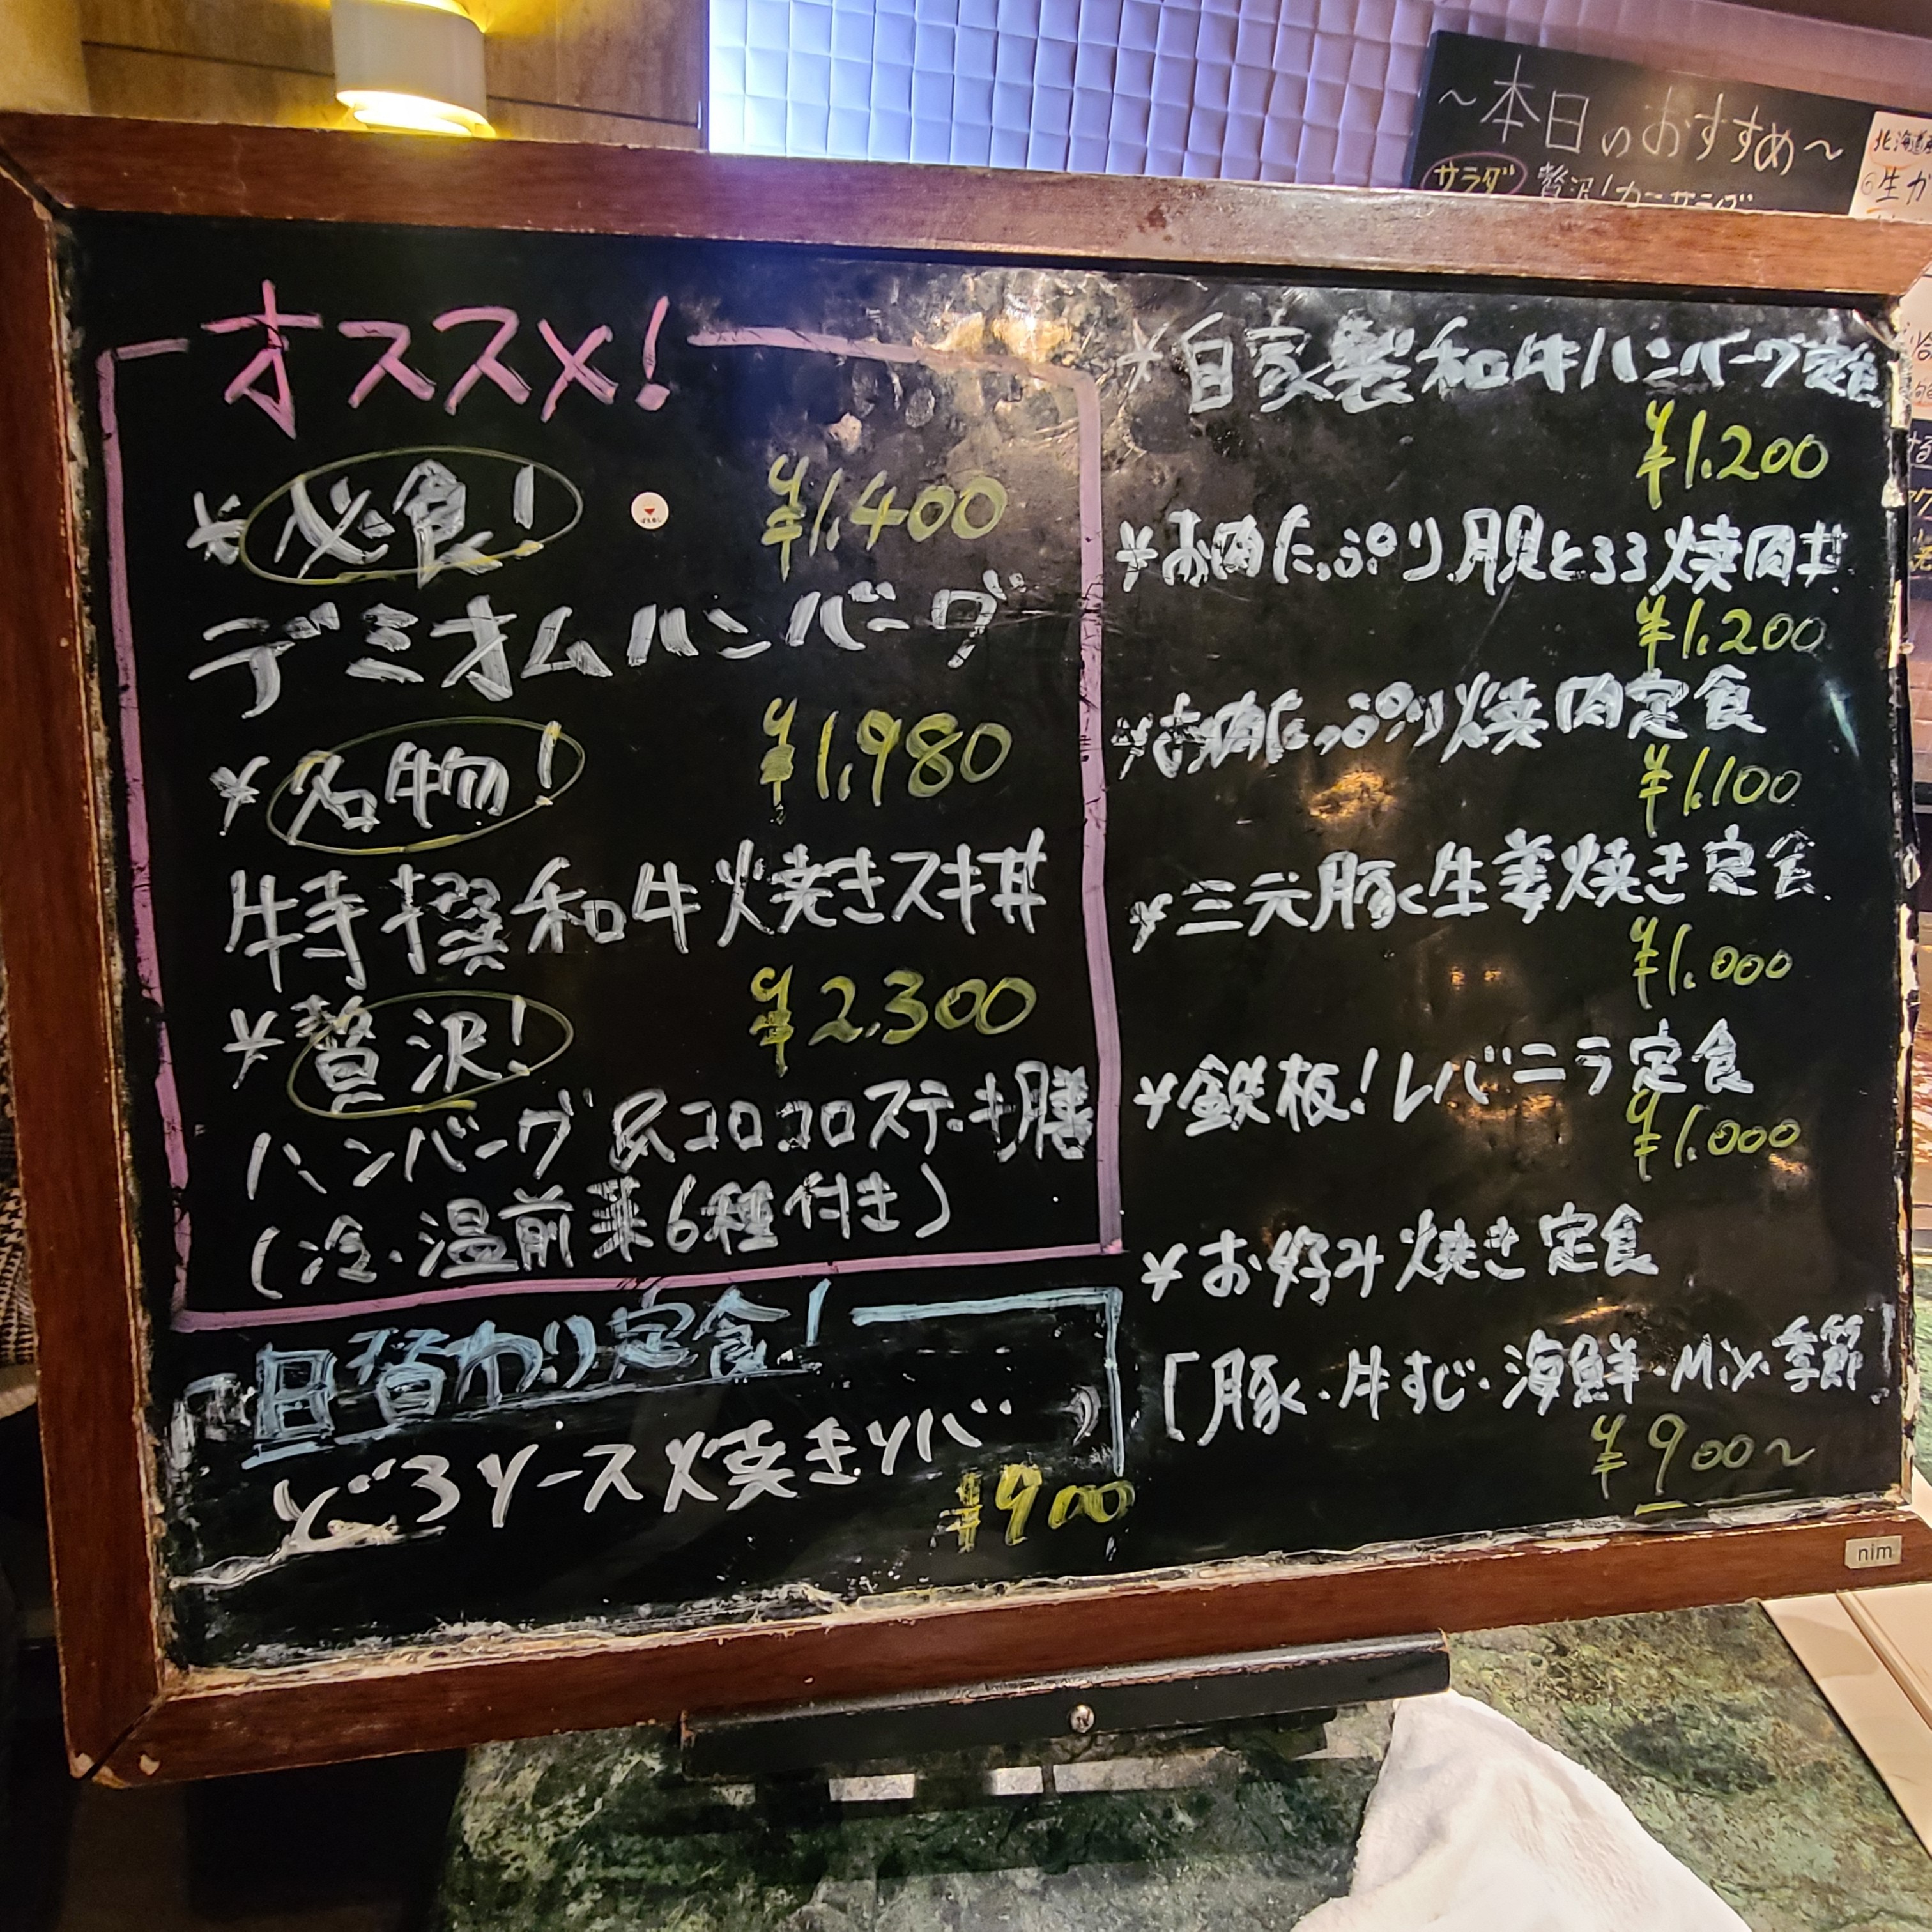 ~本日のおすすめ~
サラダ 贅沢!カニサラダ
北海道産
生ガ
オススメ!
* 必食! ¥1.400
デミオムハンバーグ
* 名物! ¥1.980
特撰和牛焼きスキ丼
* 贅沢! ¥2.300
ハンバーグ&コロコロステーキ膳
(冷・温前菜6種付き)
日替わり定食!
どろソース焼きソバ
¥900
* 自家製和牛ハンバーグ定食
¥1.200
* お肉たっぷり温とろろ焼肉丼
¥1.200
* お肉たっぷり焼肉定食
¥1.100
* 三元豚く生姜焼き定食
¥1.000
* 鉄板!レバニラ定食
¥1.000
* お好み焼き定食
[豚・牛すじ・海鮮・Mix・季節]
¥900~
nim